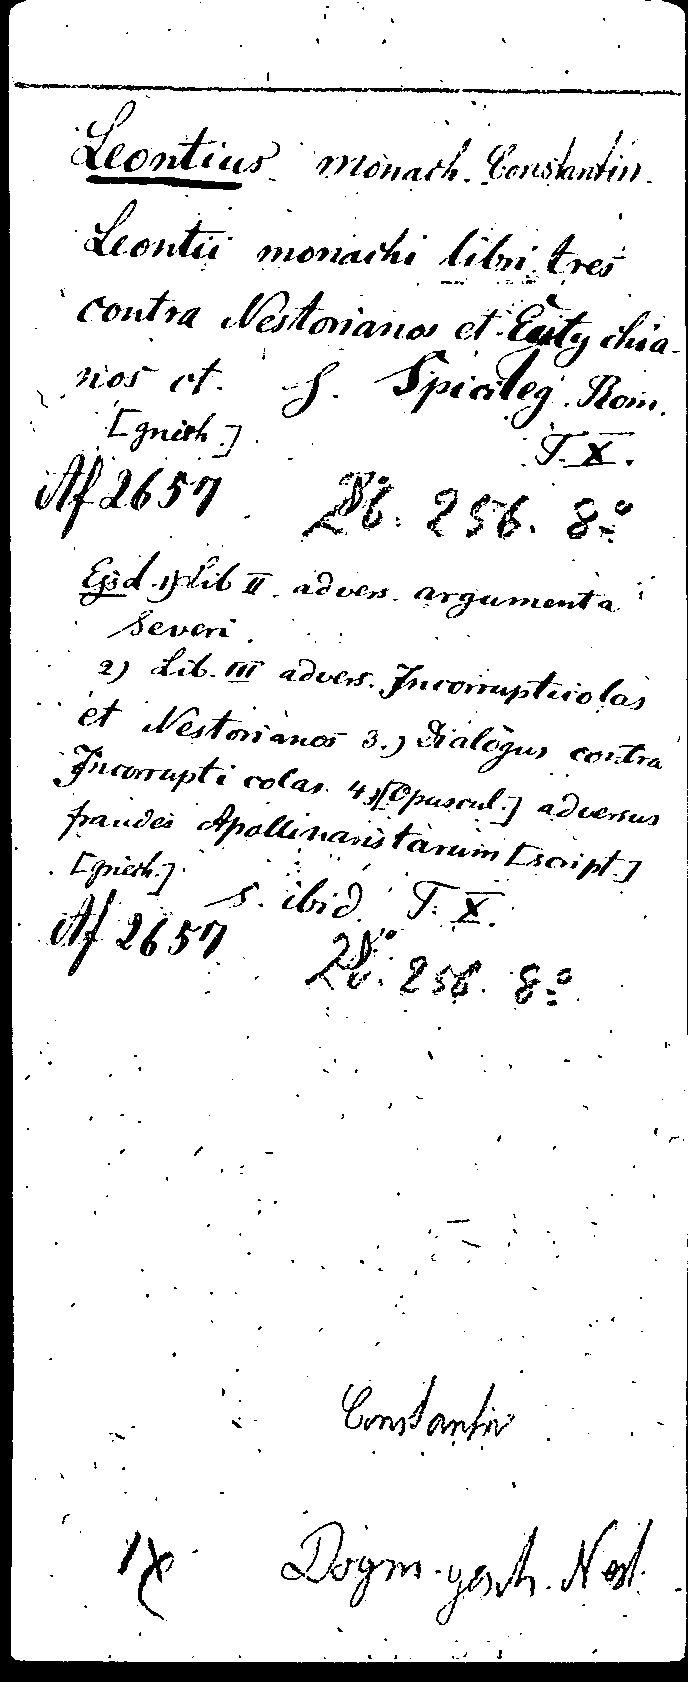 Leontius. monach. Constantin.
Leontii monachi libri tres
contra Nestorianos et Eutychia-
nos ct. S. Spicileg. Rom.
[griech.] T. X.
Af 2657 Db. 256. 8o
Ejsd. 1) Lib II. advers. argumenta
Severi.
2) Lib. III advers. Incorrupticolas
et Nestorianos 3.) Dialogus contra
Incorrupticolas. 4.) [Opuscul.] adversus
fraudes Apollinaristarum [script.]
[griech.].
S. ibid. T. X.
Af 2657 Db. 256. 8o
Constantin
Dogm. gesch. Nest.